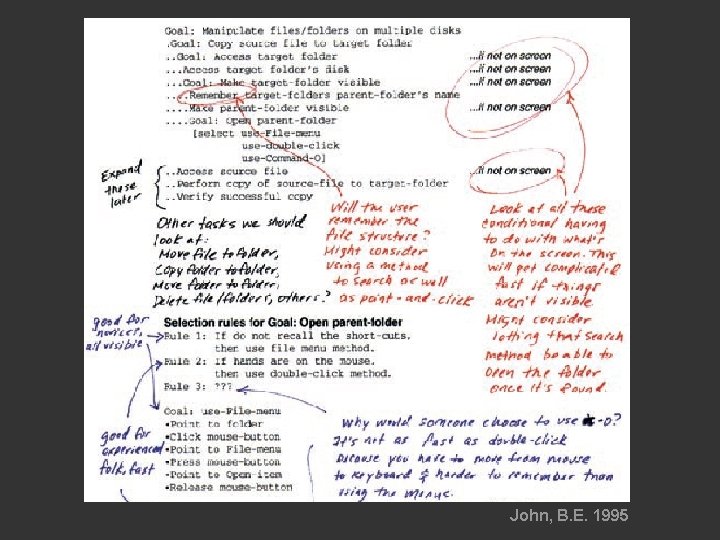 Goal: Manipulate files/folders on multiple disks
.Goal: Copy source file to target folder
..Goal: Access target folder ...if not on screen
...Access target folder's disk ...if not on screen
...Goal: Make target-folder visible ...if not on screen
....Remember target-folders parent-folder's name
....Make parent-folder visible ...if not on screen
....Goal: Open parent-folder
[select use-File-menu
use-double-click
use-Command-O]
..Access source file ...if not on screen
..Perform copy of source-file to target-folder
..Verify successful copy
Expand
these
later
Other tasks we should
look at:
Move file to folder,
Copy folder to folder,
Move folder to folder,
Delete file/folders, others?
Will the user
remember the
file structure?
Might consider
using a method
to search as well
as point-and-click
Look at all these
conditional having
to do with what's
on the screen. This
will get complicated
fast if things
aren't visible
Might consider
letting that search
method be able to
open the folder
once it's found.
good for
novices,
all visible
Selection rules for Goal: Open parent-folder
Rule 1: If do not recall the short-cuts,
then use file menu method.
Rule 2: If hands are on the mouse,
then use double-click method.
Rule 3: ???
Goal: use-File-menu
•Point to folder
•Click mouse-button
•Point to File-menu
•Press mouse-button
•Point to Open-item
•Release mouse-button
good for
experienced
folk, fast
Why would someone choose to use -O?
It's not as fast as double-click
because you have to move from mouse
to keyboard & harder to remember than
using the menus.
John, B.E. 1995